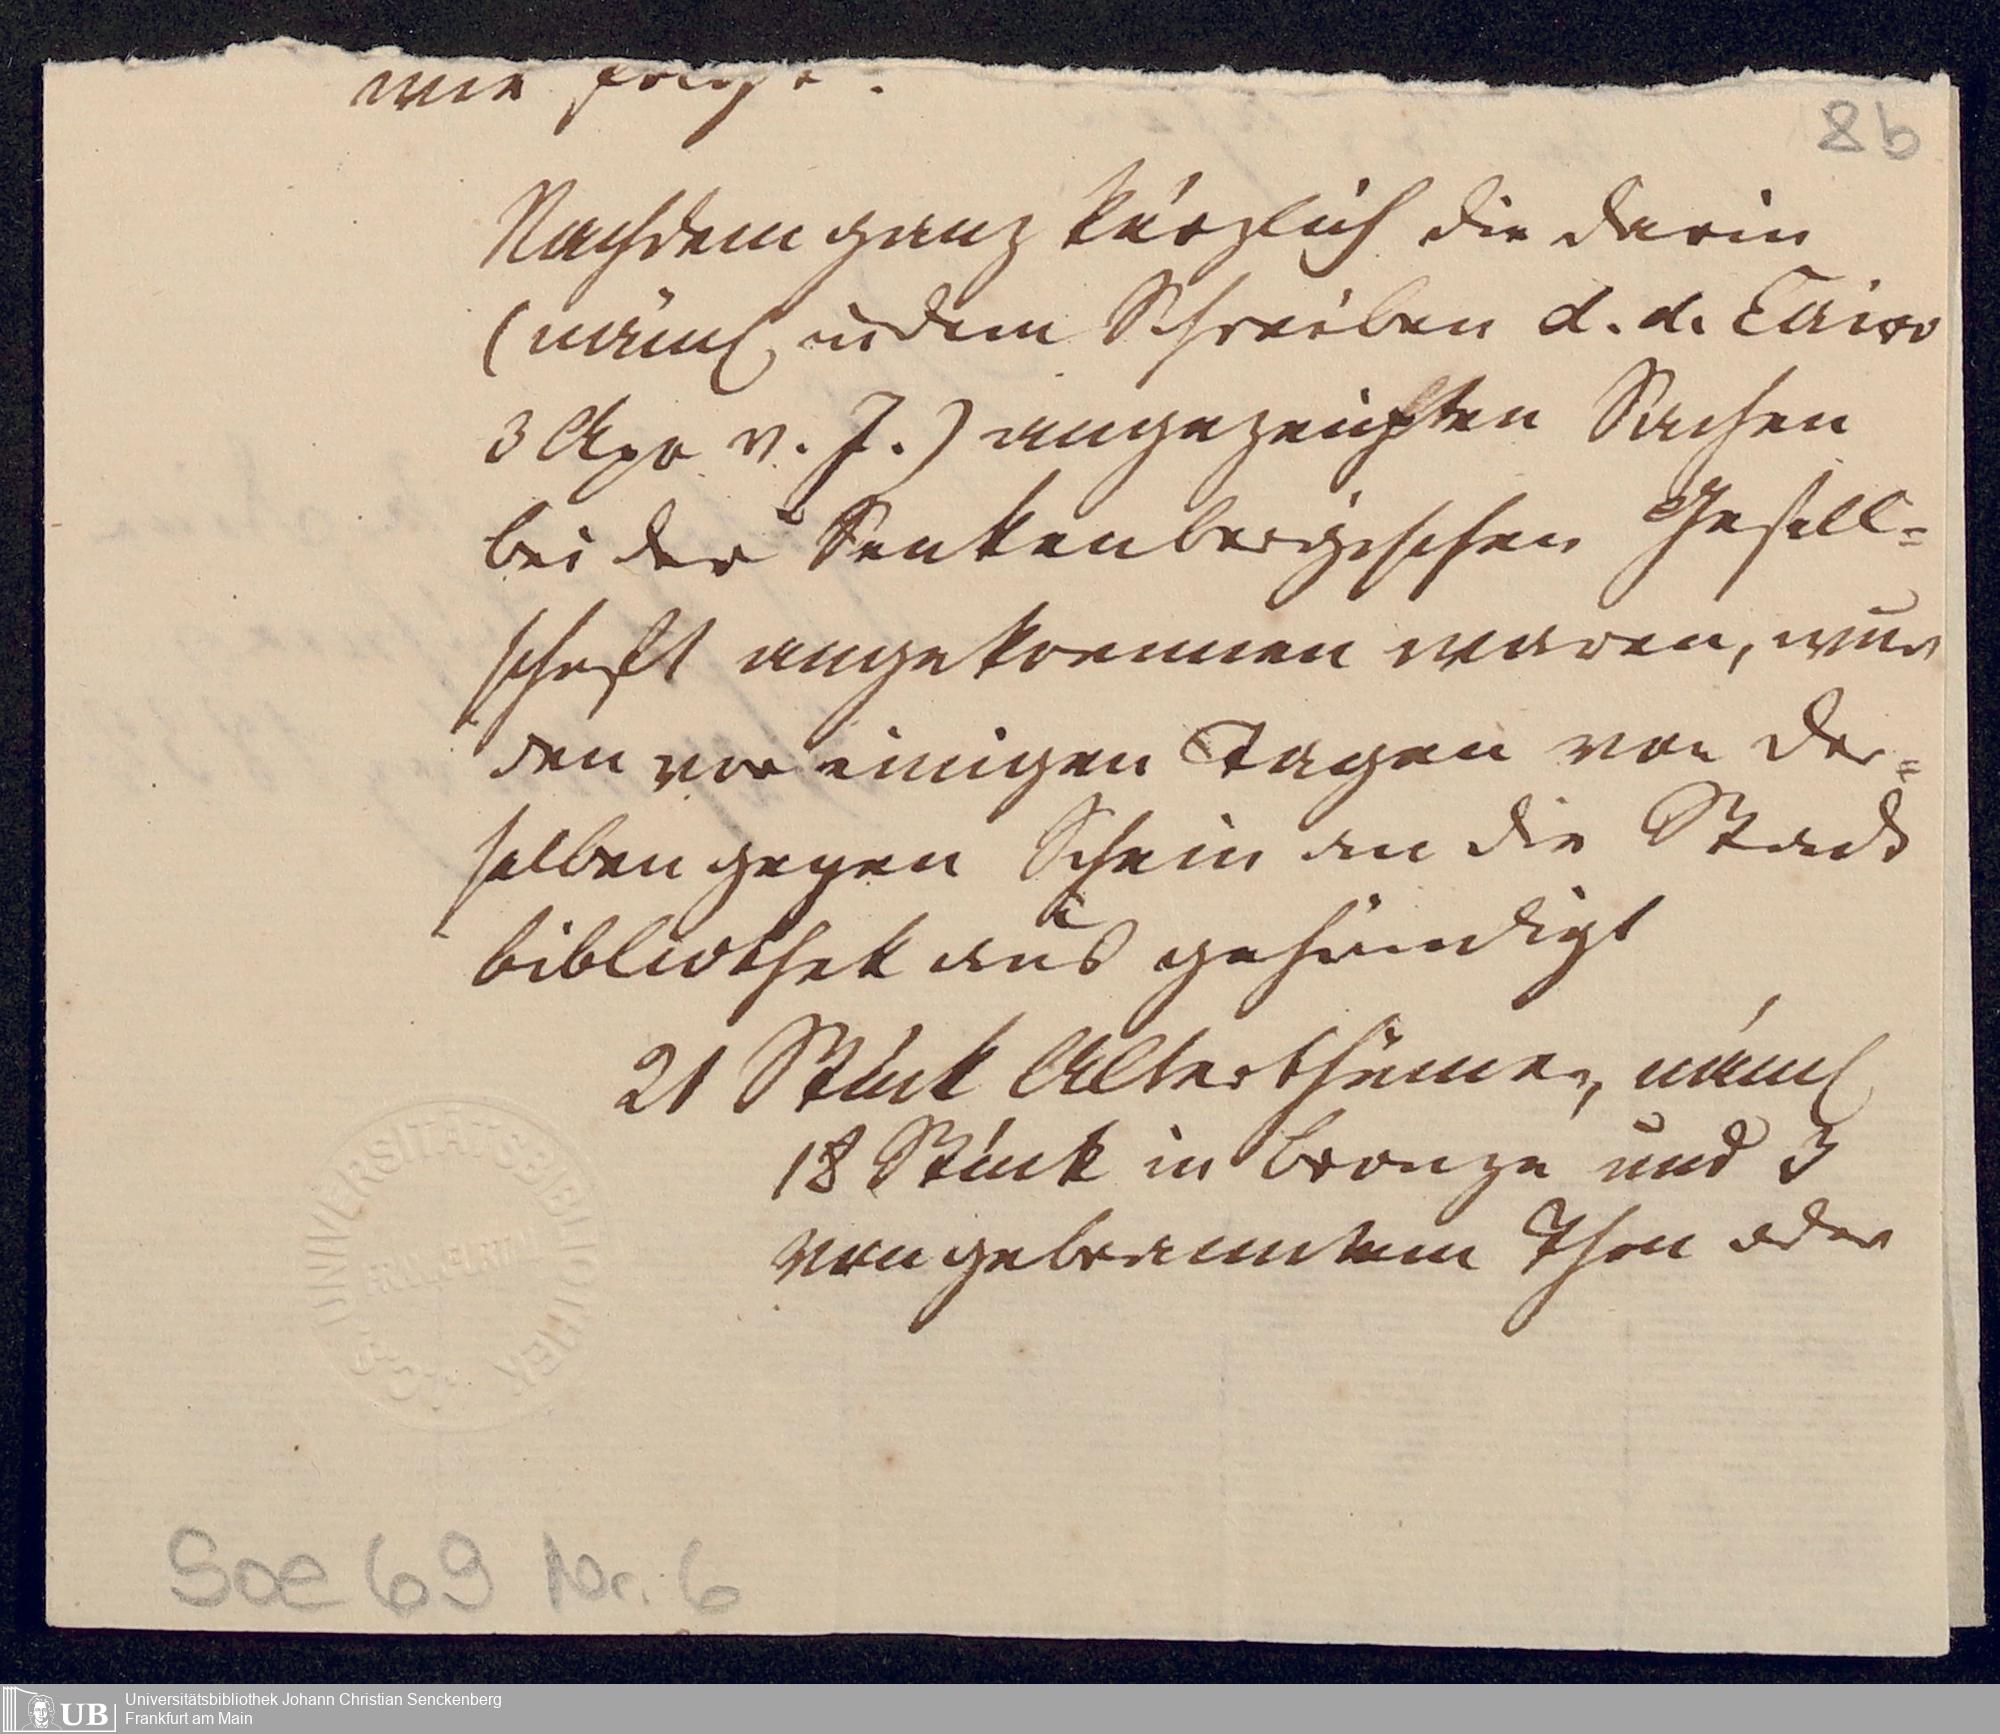 wie folgt.
8b
Nachdem ganz kürzlich die darin
(näml in dem Schreiben d. d. Cairo
3 Apr v. J.) angezeigten Sachen
bei der Senkenbergischen Gesell=
schaft angekommen waren, wur
den vor einigen Tagen von der=
selben gegen Schein an die Stadt
bibliothek aus gehändigt
21 Stück Alterthümer, näml
18 Stück in Bronze und 3
von gebranntem Thon oder
UNIVERSITÄTSBIBLIOTHEK
FRANKFURT/M
Soe 69 Nr. 6
UB
Universitätsbibliothek Johann Christian Senckenberg
Frankfurt am Main